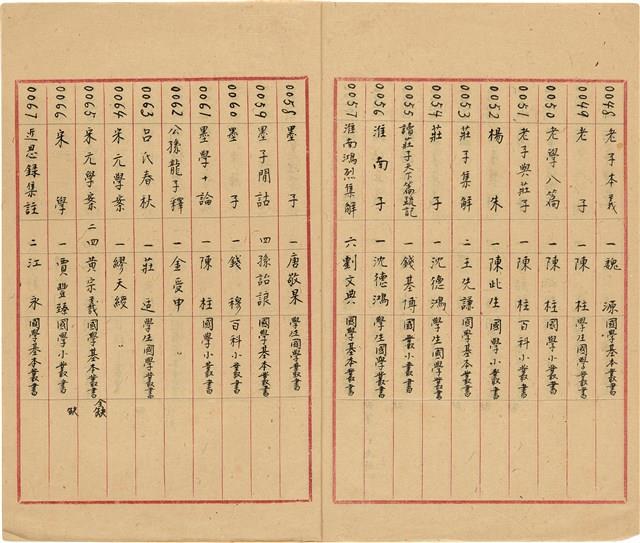 0048 老子本義 一 魏源 國學基本叢書
0049 老子 一 陳柱 學生國學叢書
0050 老學八篇 一 陳柱 國學小叢書
0051 老子與莊子 一 陳柱 百科小叢書
0052 楊朱 一 陳此生 國學小叢書
0053 莊子集解 二 王先謙 國學基本叢書
0054 莊子 一 沈德鴻 學生國學叢書
0055 讀莊子天下篇疏記 一 錢基博 國學小叢書
0056 淮南子 一 沈德鴻 學生國學叢書
0057 淮南鴻烈集解 六 劉文典 國學基本叢書
0058 墨子 一 唐敬杲 學生國學叢書
0059 墨子閒詁 四 孫詒讓 國學基本叢書
0060 墨子 一 錢穆 百科小叢書
0061 墨學十論 一 陳柱 國學小叢書
0062 公孫龍子釋 一 金受申 〃
0063 呂氏春秋 一 莊适 學生國學叢書
0064 宋元學案 一 繆天綬 〃
0065 宋元學案 二四 黃宗羲 國學基本叢書 全缺
0066 宋學 一 賈豐臻 國學小叢書 缺
0067 近思錄集註 二 江永 國學基本叢書